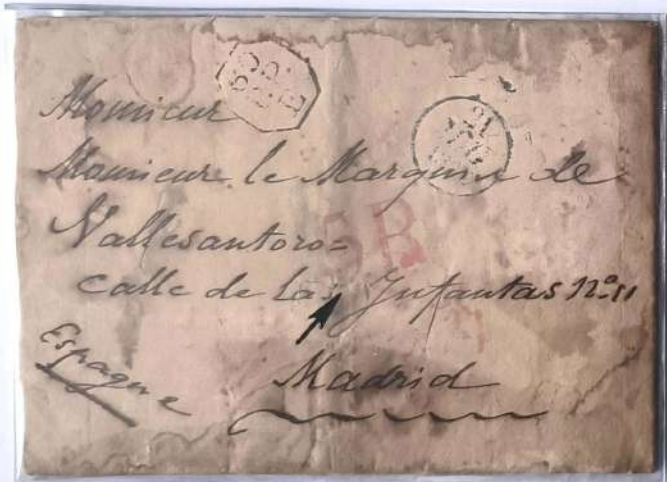 Monsieur
Monsieur le Marquis de
Vallesantoro=
Calle de las Infantas Nº 11
Espagne
Madrid